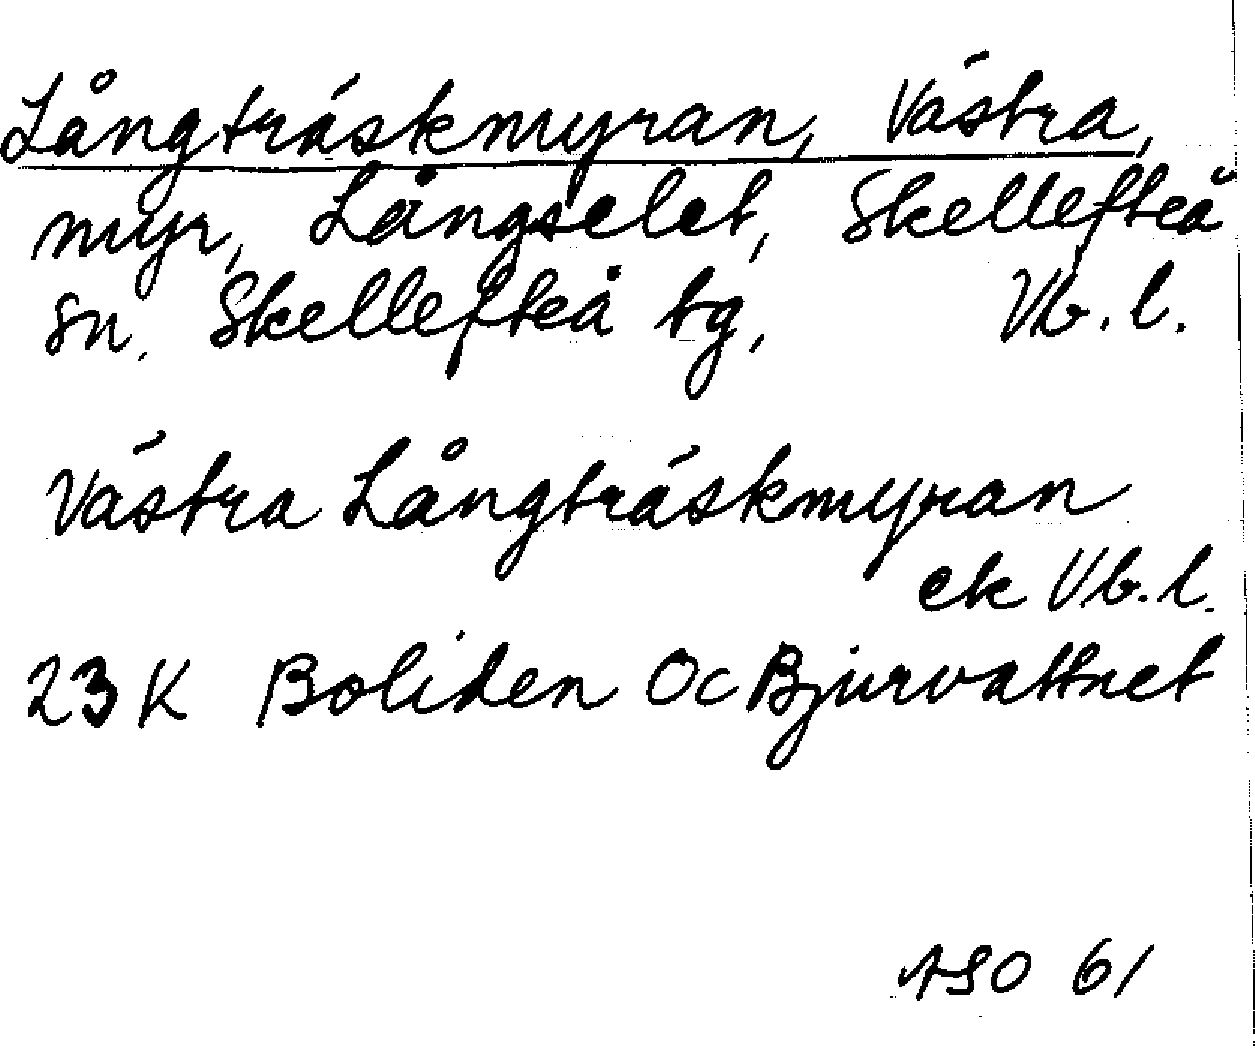 Långträskmyran, Västra,
myr, Långselet, Skellefteå
sn. Skellefteå tg, Vb. l.
Västra Långträskmyran
ek Vb. l.
23 K Boliden Oc Bjurvattnet
ASO 61